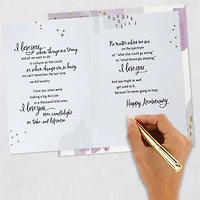 I love you
when things are boring
and all we want to do
is collapse on the couch,
or when things are so busy
we can't remember the last time
we did laundry.
I love you when we're
making a big decision
or a thousand little ones.
I love you
over candlelight
or take-out leftovers.
No matter where we are
on the spectrum
of "what else could go wrong"
to "mind-blowingly amazing,"
I love you.
And you might as well
get used to it,
because I'm never going to stop.
Happy Anniversary